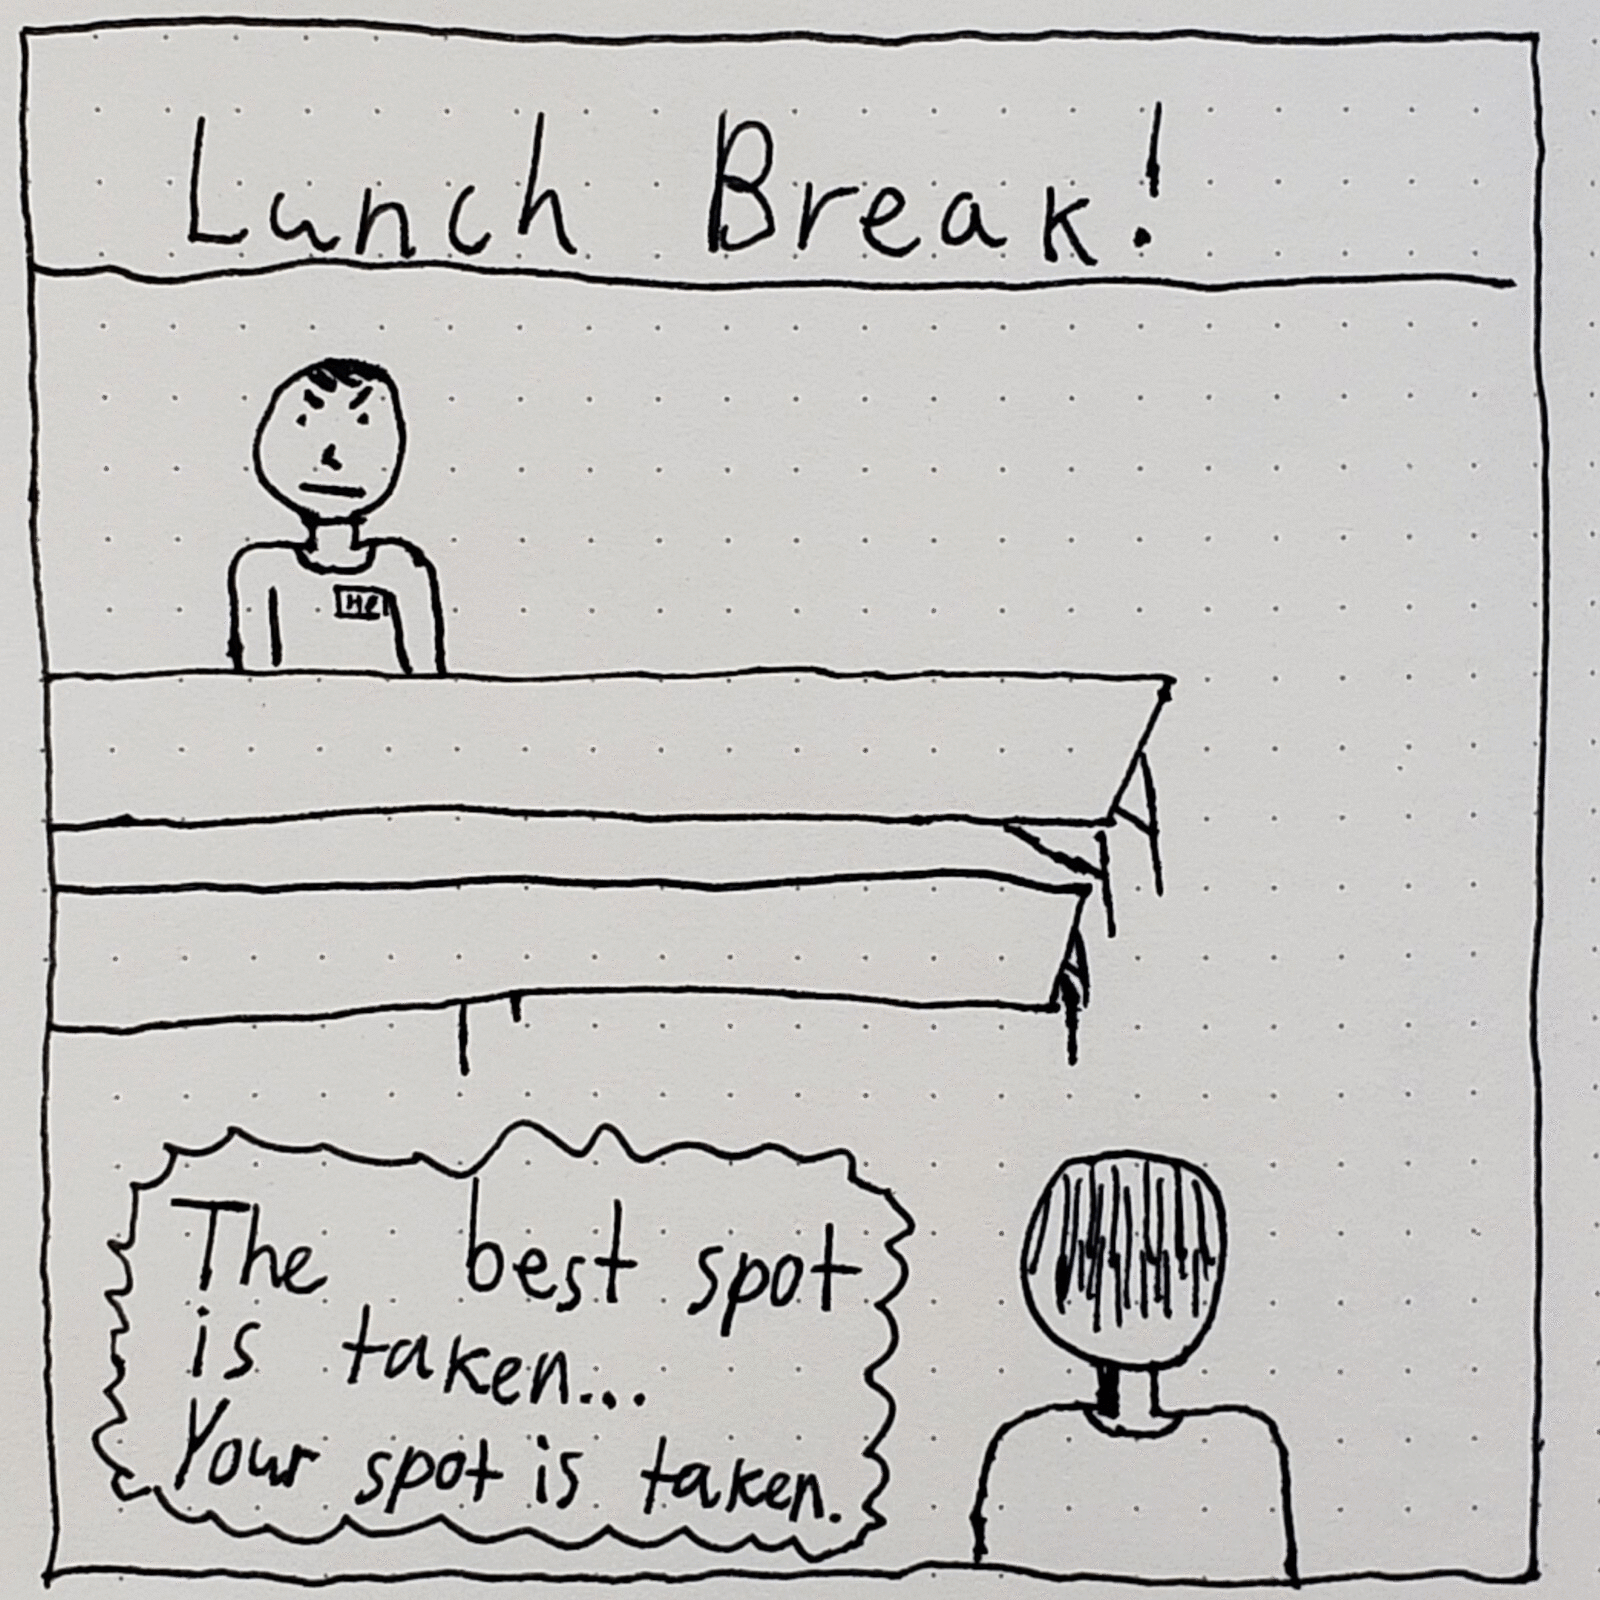 Lunch Break!
Hel
The best spot
is taken...
Your spot is taken.